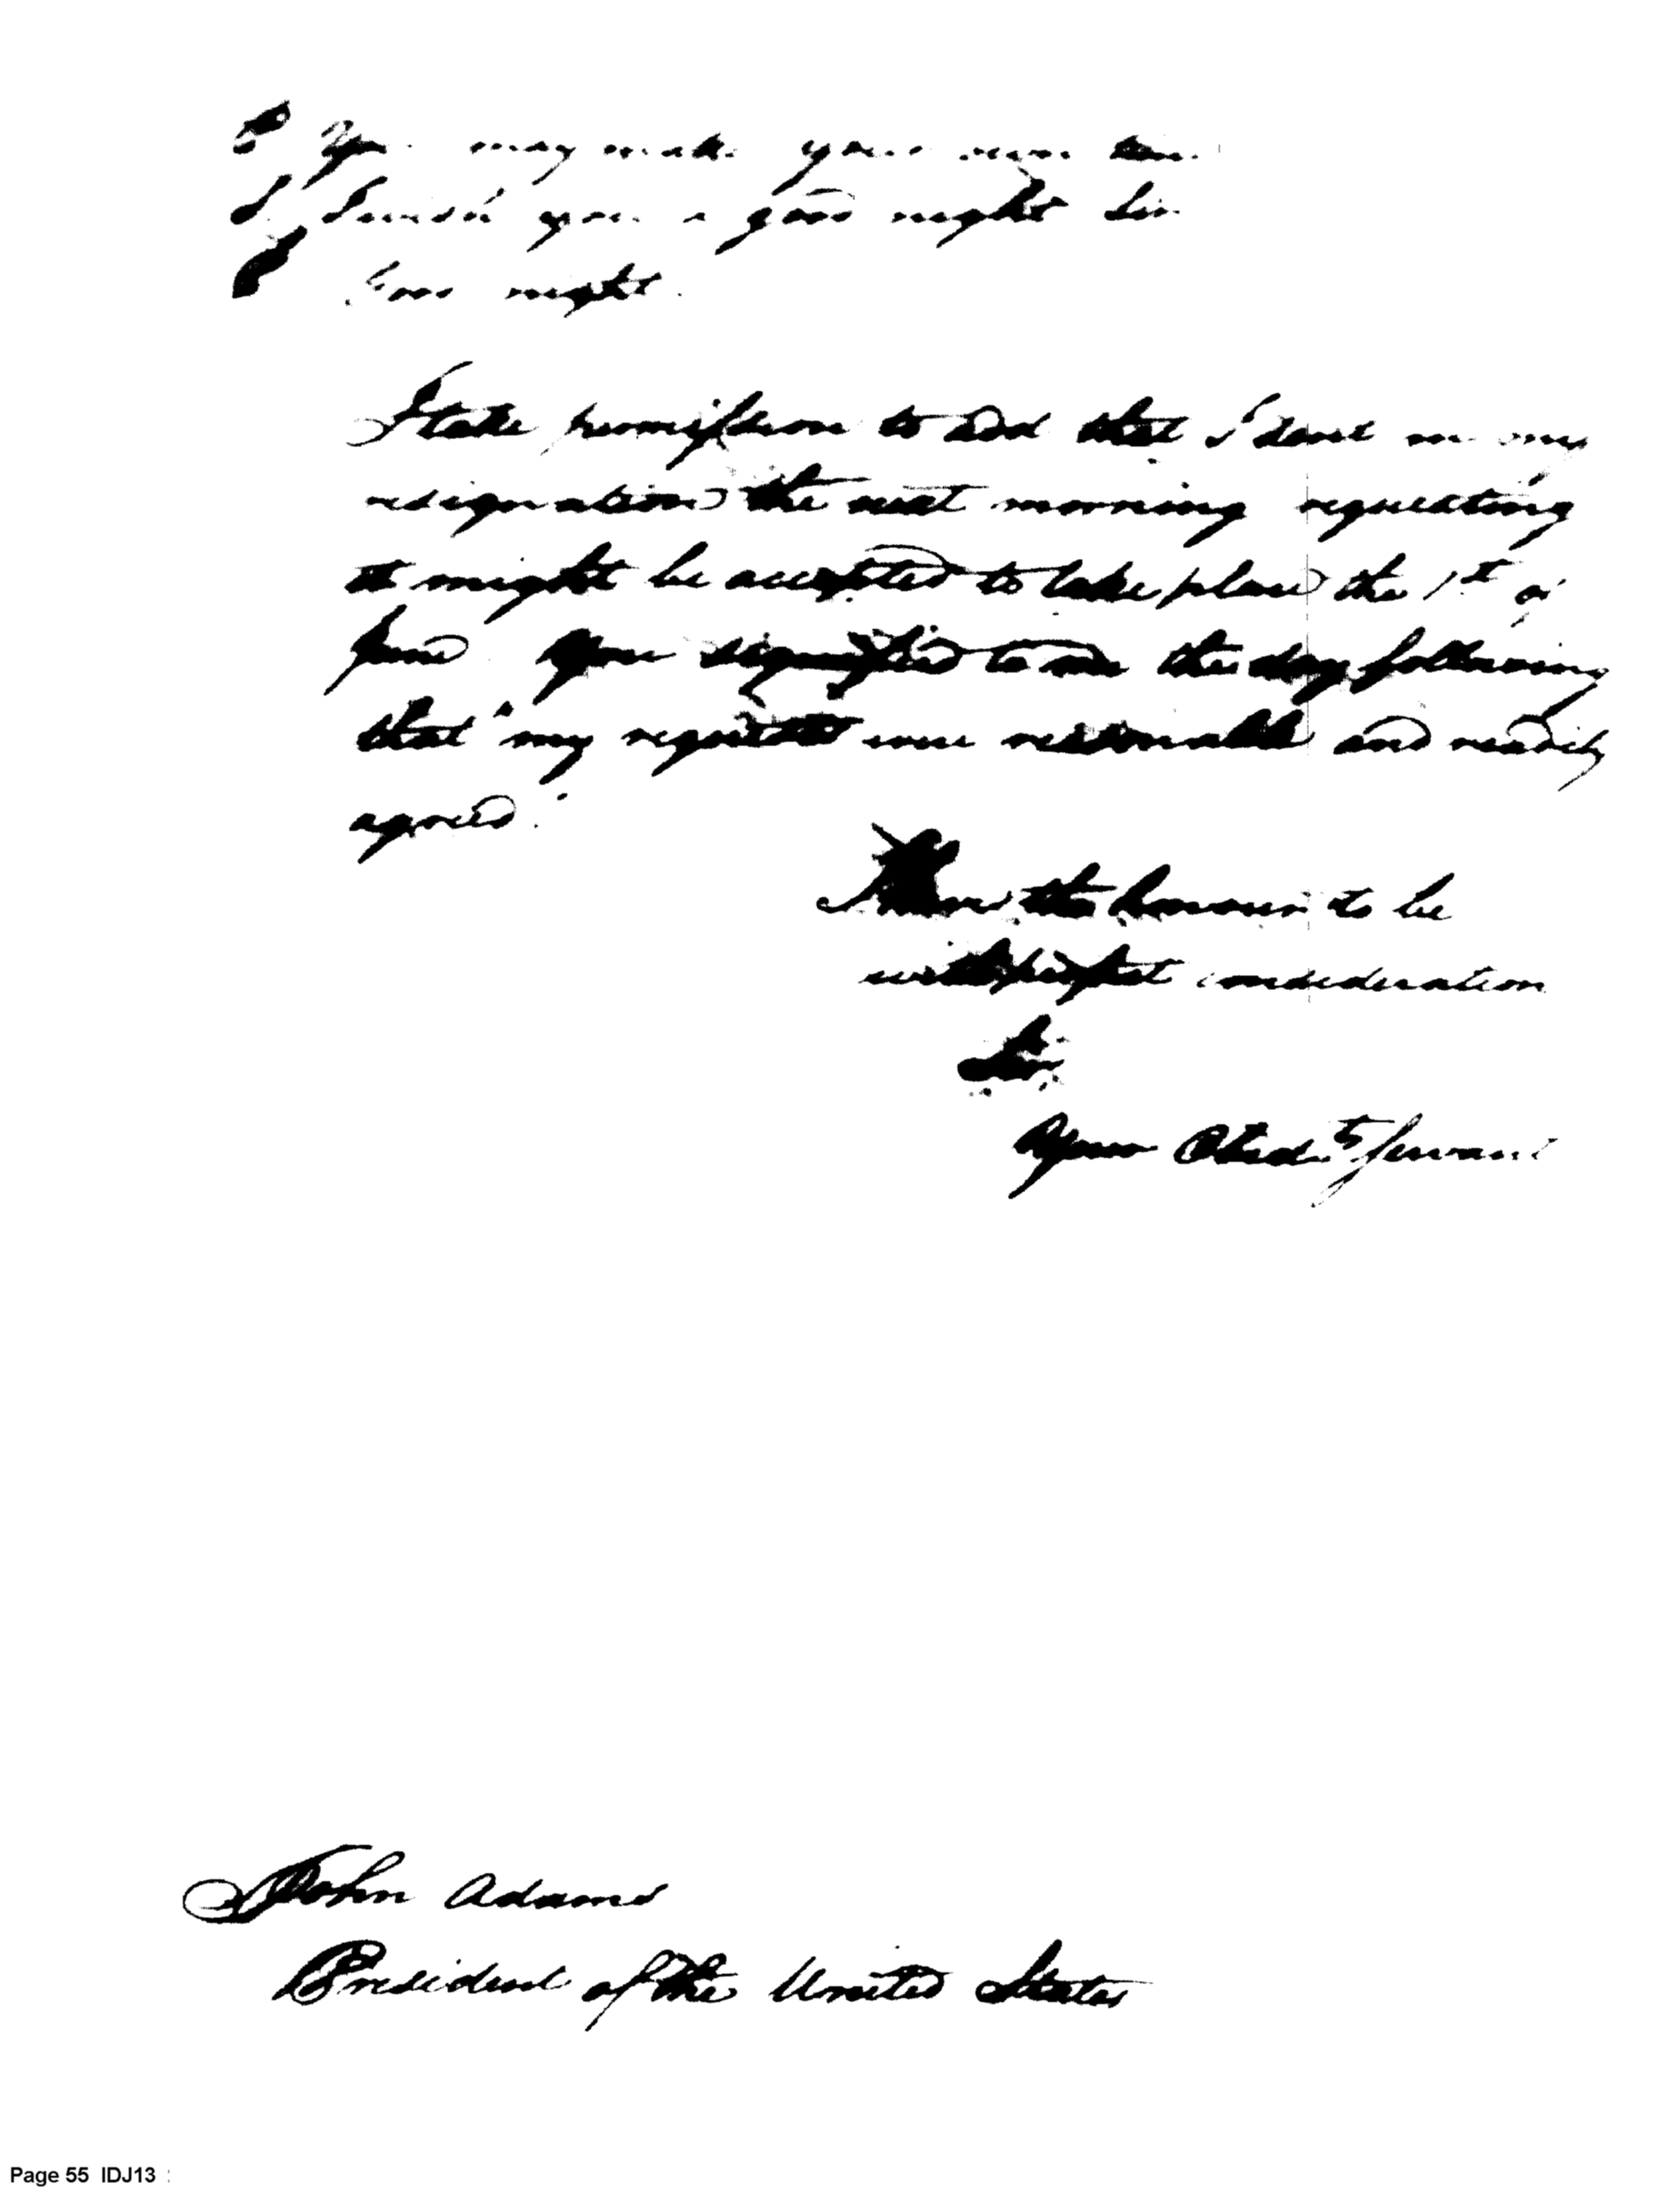 P You may make your own time.
J I wish you a good night Sir
P Good night.
I take permission to add that I sent in my
resignation the next morning requesting
it might be accepted to take place the 1st of
June. You signified to me the day following
that my request was reasonable and readily
agreed.
I have the honour to be
with perfect consideration
Sir
Your Obedt Servant
John Adams
President of the United States
Page 55 IDJ13